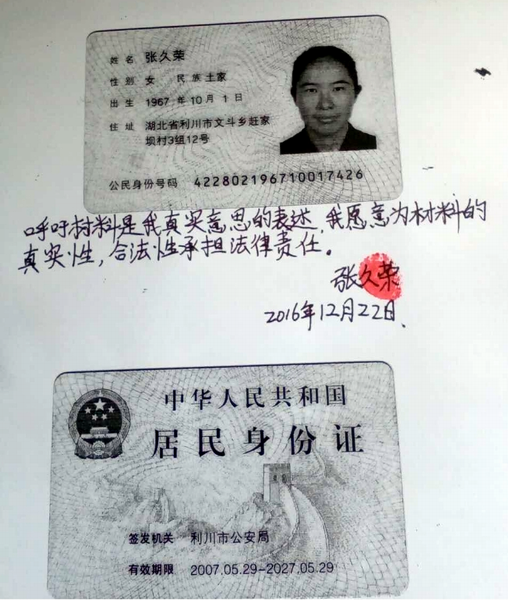 姓名 张久荣
性别 女 民族土家
出生 1967 年 10 月 1 日
住址 湖北省利川市文斗乡赶家
坝村3组12号
公民身份号码 422802196710017426
呼吁材料是我真实意思的表述,我愿意为材料的
真实性,合法性承担法律责任。
张久荣
2016年12月22日.
中华人民共和国
居民身份证
签发机关 利川市公安局
有效期限 2007.05.29-2027.05.29